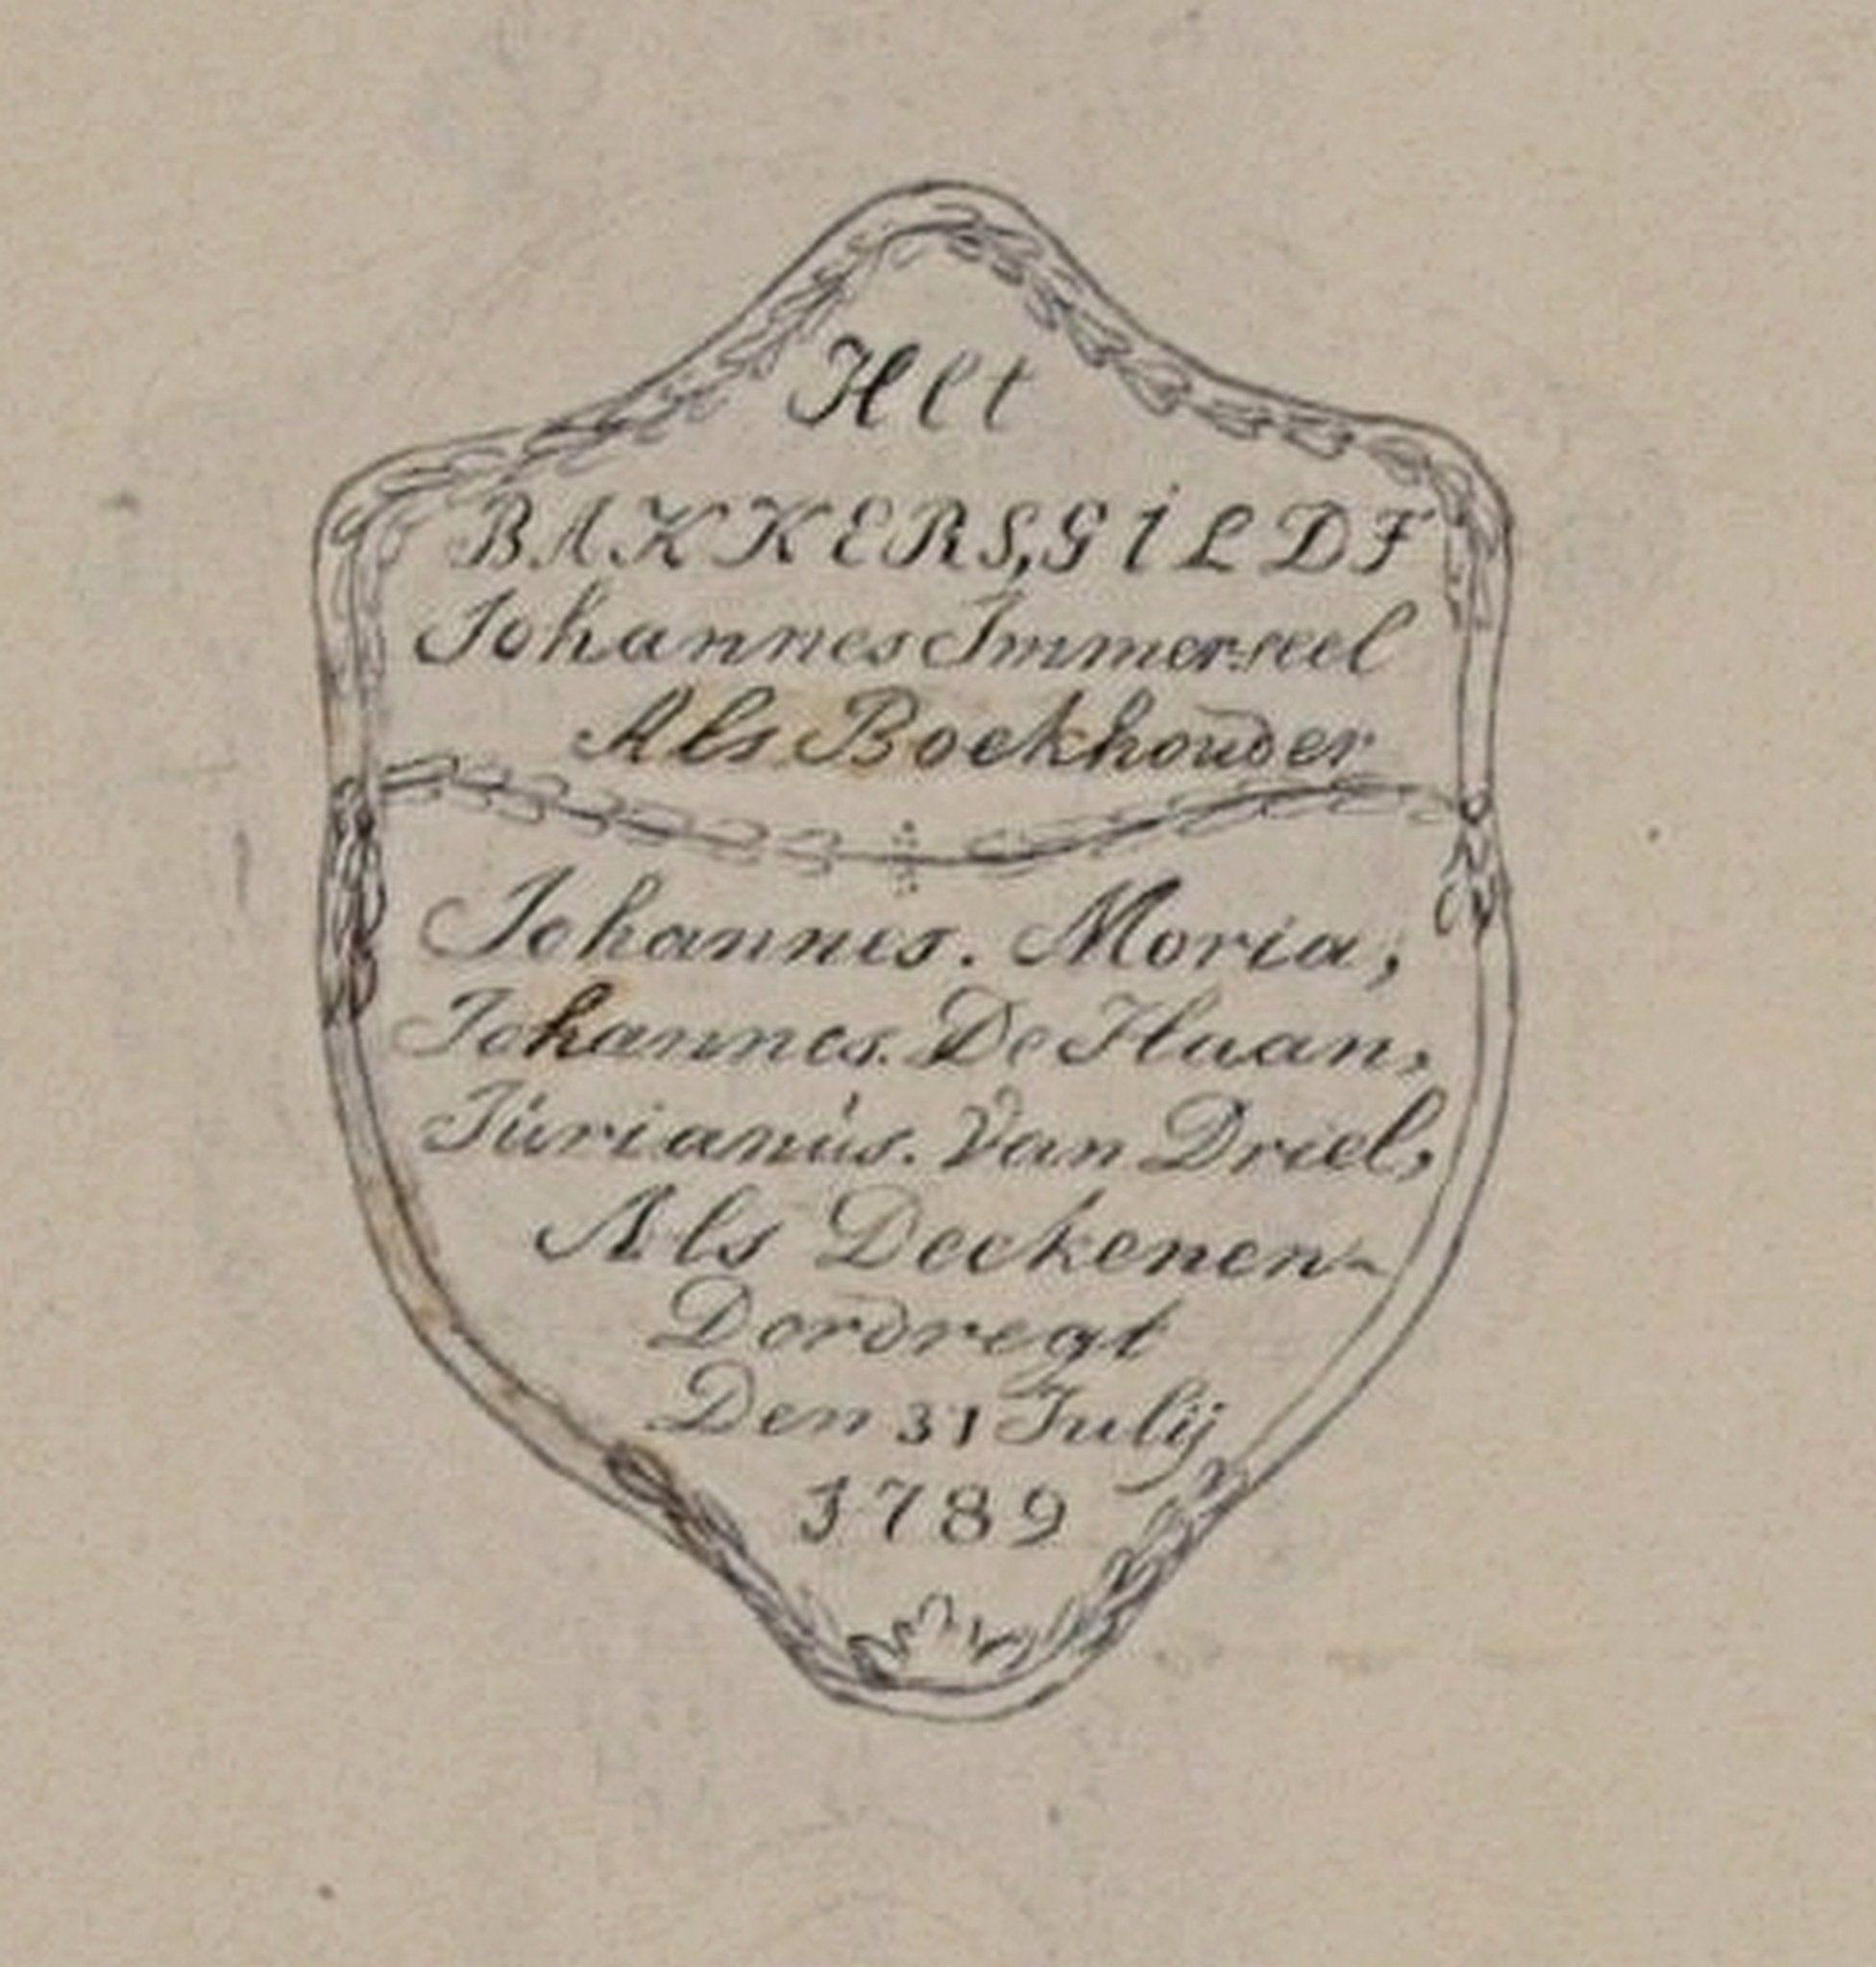 Het
BAKKERS,GILDE
Johannes Immerseel
Als Boekhouder
Johannes. Moria,
Johannes. De Haan,
Júrianús. Van Driel,
Als Deekenen
Dordregt
Den 31 Julij
1789